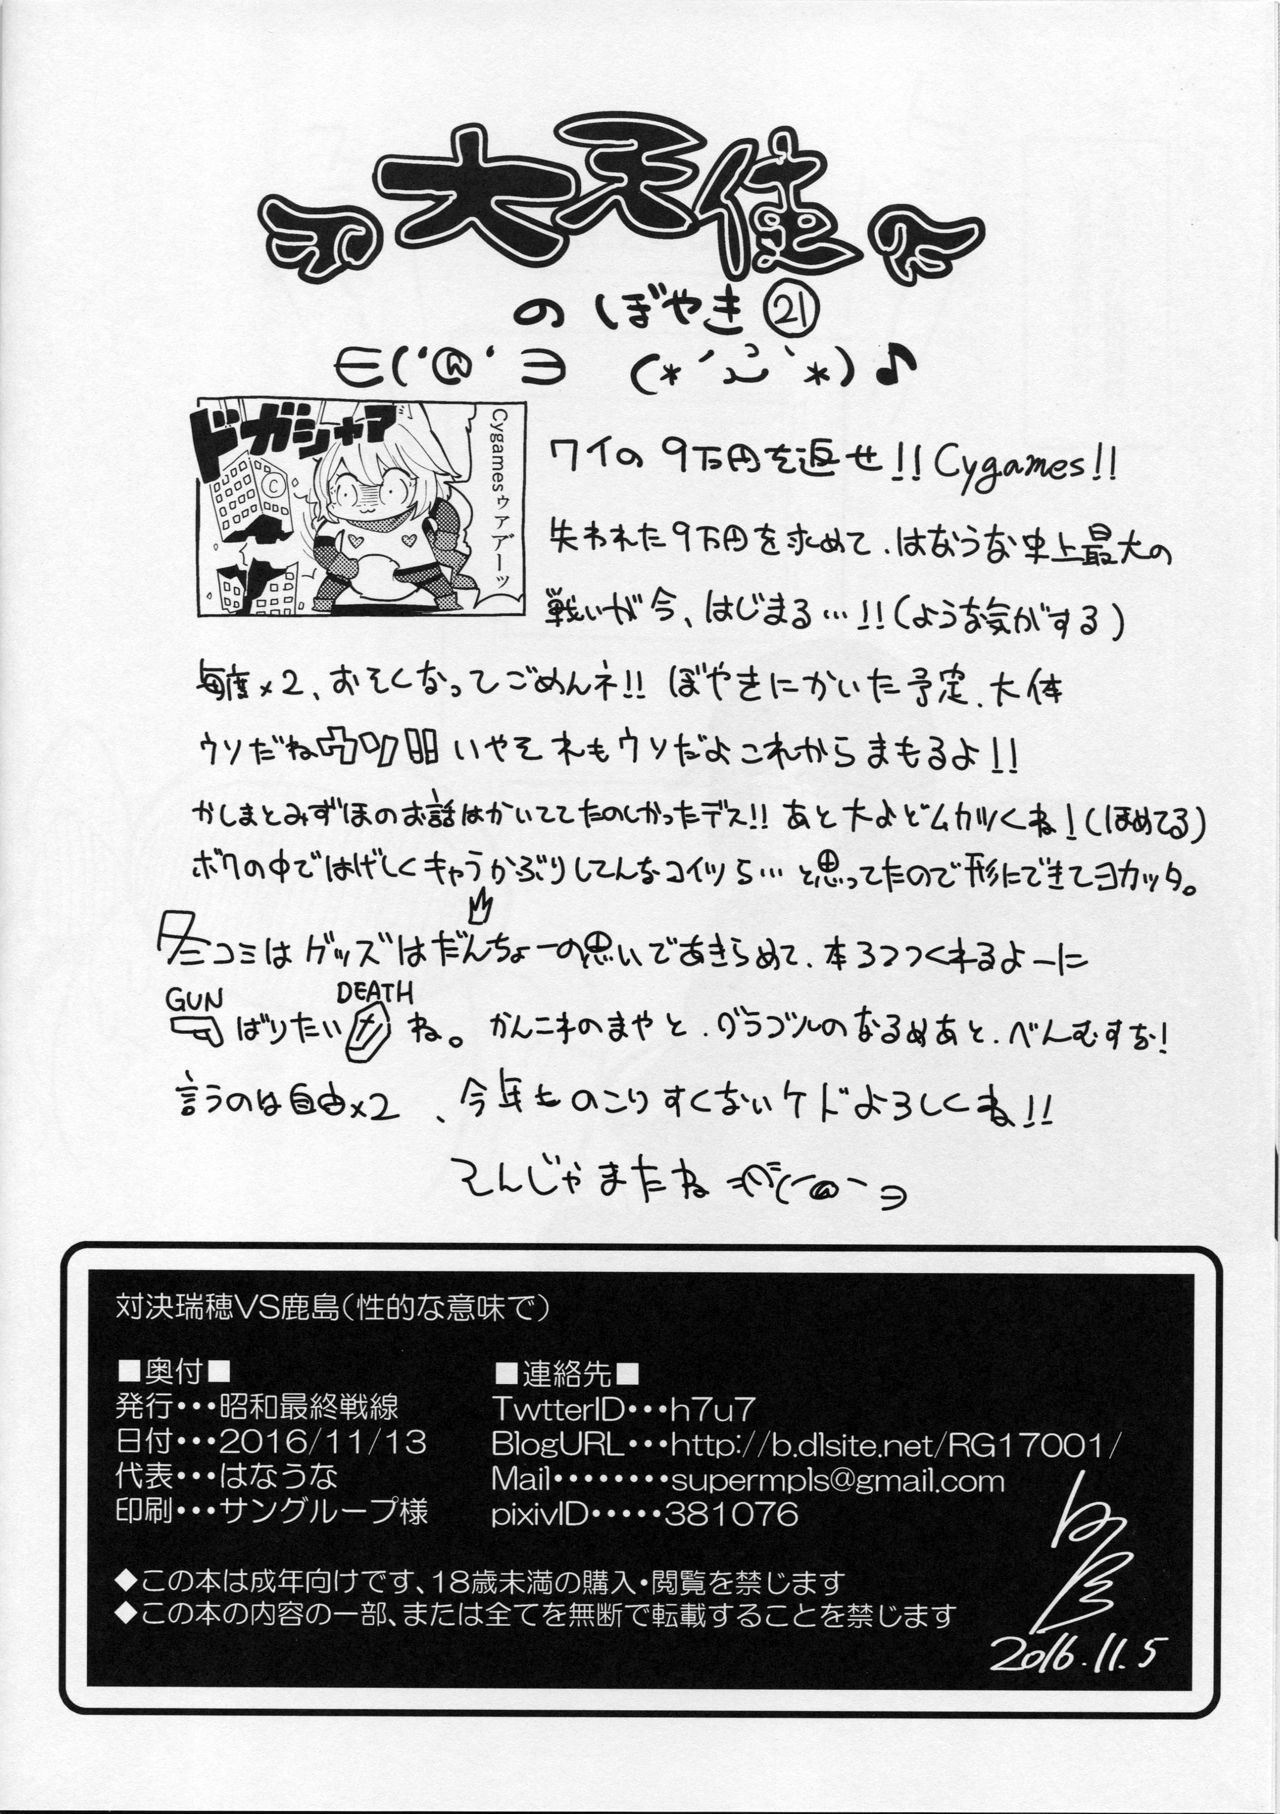 大天使
のぼやき㉑
∈(‘@‘∋ (*´ ｀*)♪
ドガシャァ
Cygamesゥァアーッ
ワイの9万円を返せ!!Cygames!!
失われた9万円を求めて、はなうな史上最大の
戦いが今、はじまる…!!(ような気がする)
毎度×2、おそくなってごめんネ!! ぼやきにかいた予定、大体
ウソだねウソ!!いやそれもウソだよこれからまもるよ!!
かしまとみずほのお話はかいててたのしかったデス!! あと大よどムカツくね!(ほめてる)
ボクの中ではげしくキャラかぶりしてんなコイツら…と思ってたので形にできてヨカッタ。
冬コミはグッズはだんちょーの思いであきらめて、本3つつくれるよーに
GUN DEATH
ばりたい ね。かんこれのまやと、グラブルのなるめあと、べんむすな!
言うのは自由×2、今年ものこりすくないケドよろしくね!!
そんじゃまたね
対決瑞穂VS鹿島(性的な意味で)
■奥付■
発行・・・昭和最終戦線
日付・・・2016/11/13
代表・・・はなうな
印刷・・・サングループ様
■連絡先■
TwtterID・・・h7u7
BlogURL・・・http://b.dlsite.net/RG17001/
Mail・・・・・・・・supermpls@gmail.com
pixivID・・・・・381076
◆この本は成年向けです、18歳未満の購入・閲覧を禁じます
◆この本の内容の一部、または全てを無断で転載することを禁じます
2016.11.5